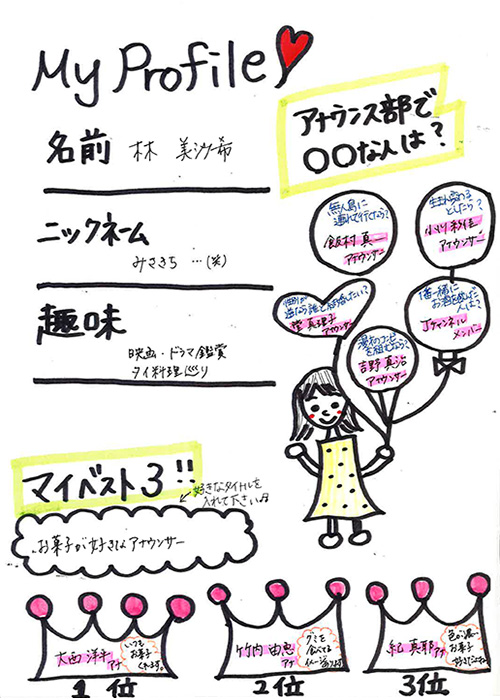 My Profile
名前 林 美沙希
ニックネーム
みさきち …(笑)
趣味
映画・ドラマ鑑賞
タイ料理巡り
アナウンス部で
○○な人は?
無人島に
連れて行くなら?
飯村真一
アナウンサー
生まれ変わる
としたら?
小川彩佳
アナウンサー
性別が
違うなら誰と結婚したい?
堂真理子
アナウンサー
一番一緒に
お酒を飲んだ
人は?
Jチャンネル
メンバー
漫才コンビ
を組むなら?
吉野真治
アナウンサー
マイベスト3!!
好きなタイトルを
入れて下さい♪
お菓子が好きなアナウンサー
大西洋平
アナ
いつも
お菓子
くれます。
1位
竹内由恵
アナ
グミを
食べてる
イメージあります
2位
紀真耶
アナ
色が濃い
お菓子
3位